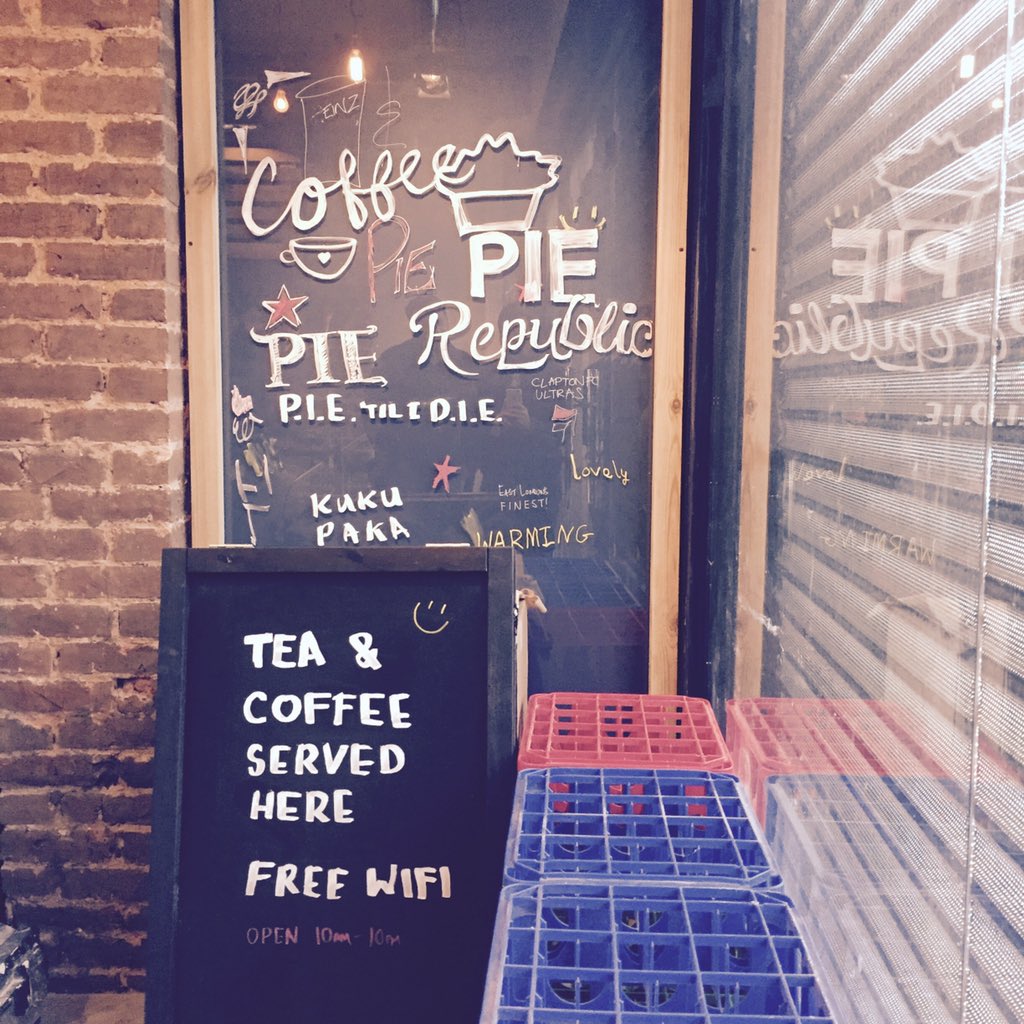 Coffee
PIE
PIE
Republic
PIE
P.I.E. 'TIL I D.I.E.
CLAPTON FC
ULTRAS
Lovely
KUKU
PAKA
EAST LONDONS
FINEST!
WARMING
TEA &
COFFEE
SERVED
HERE
FREE WIFI
OPEN 10am-10pm